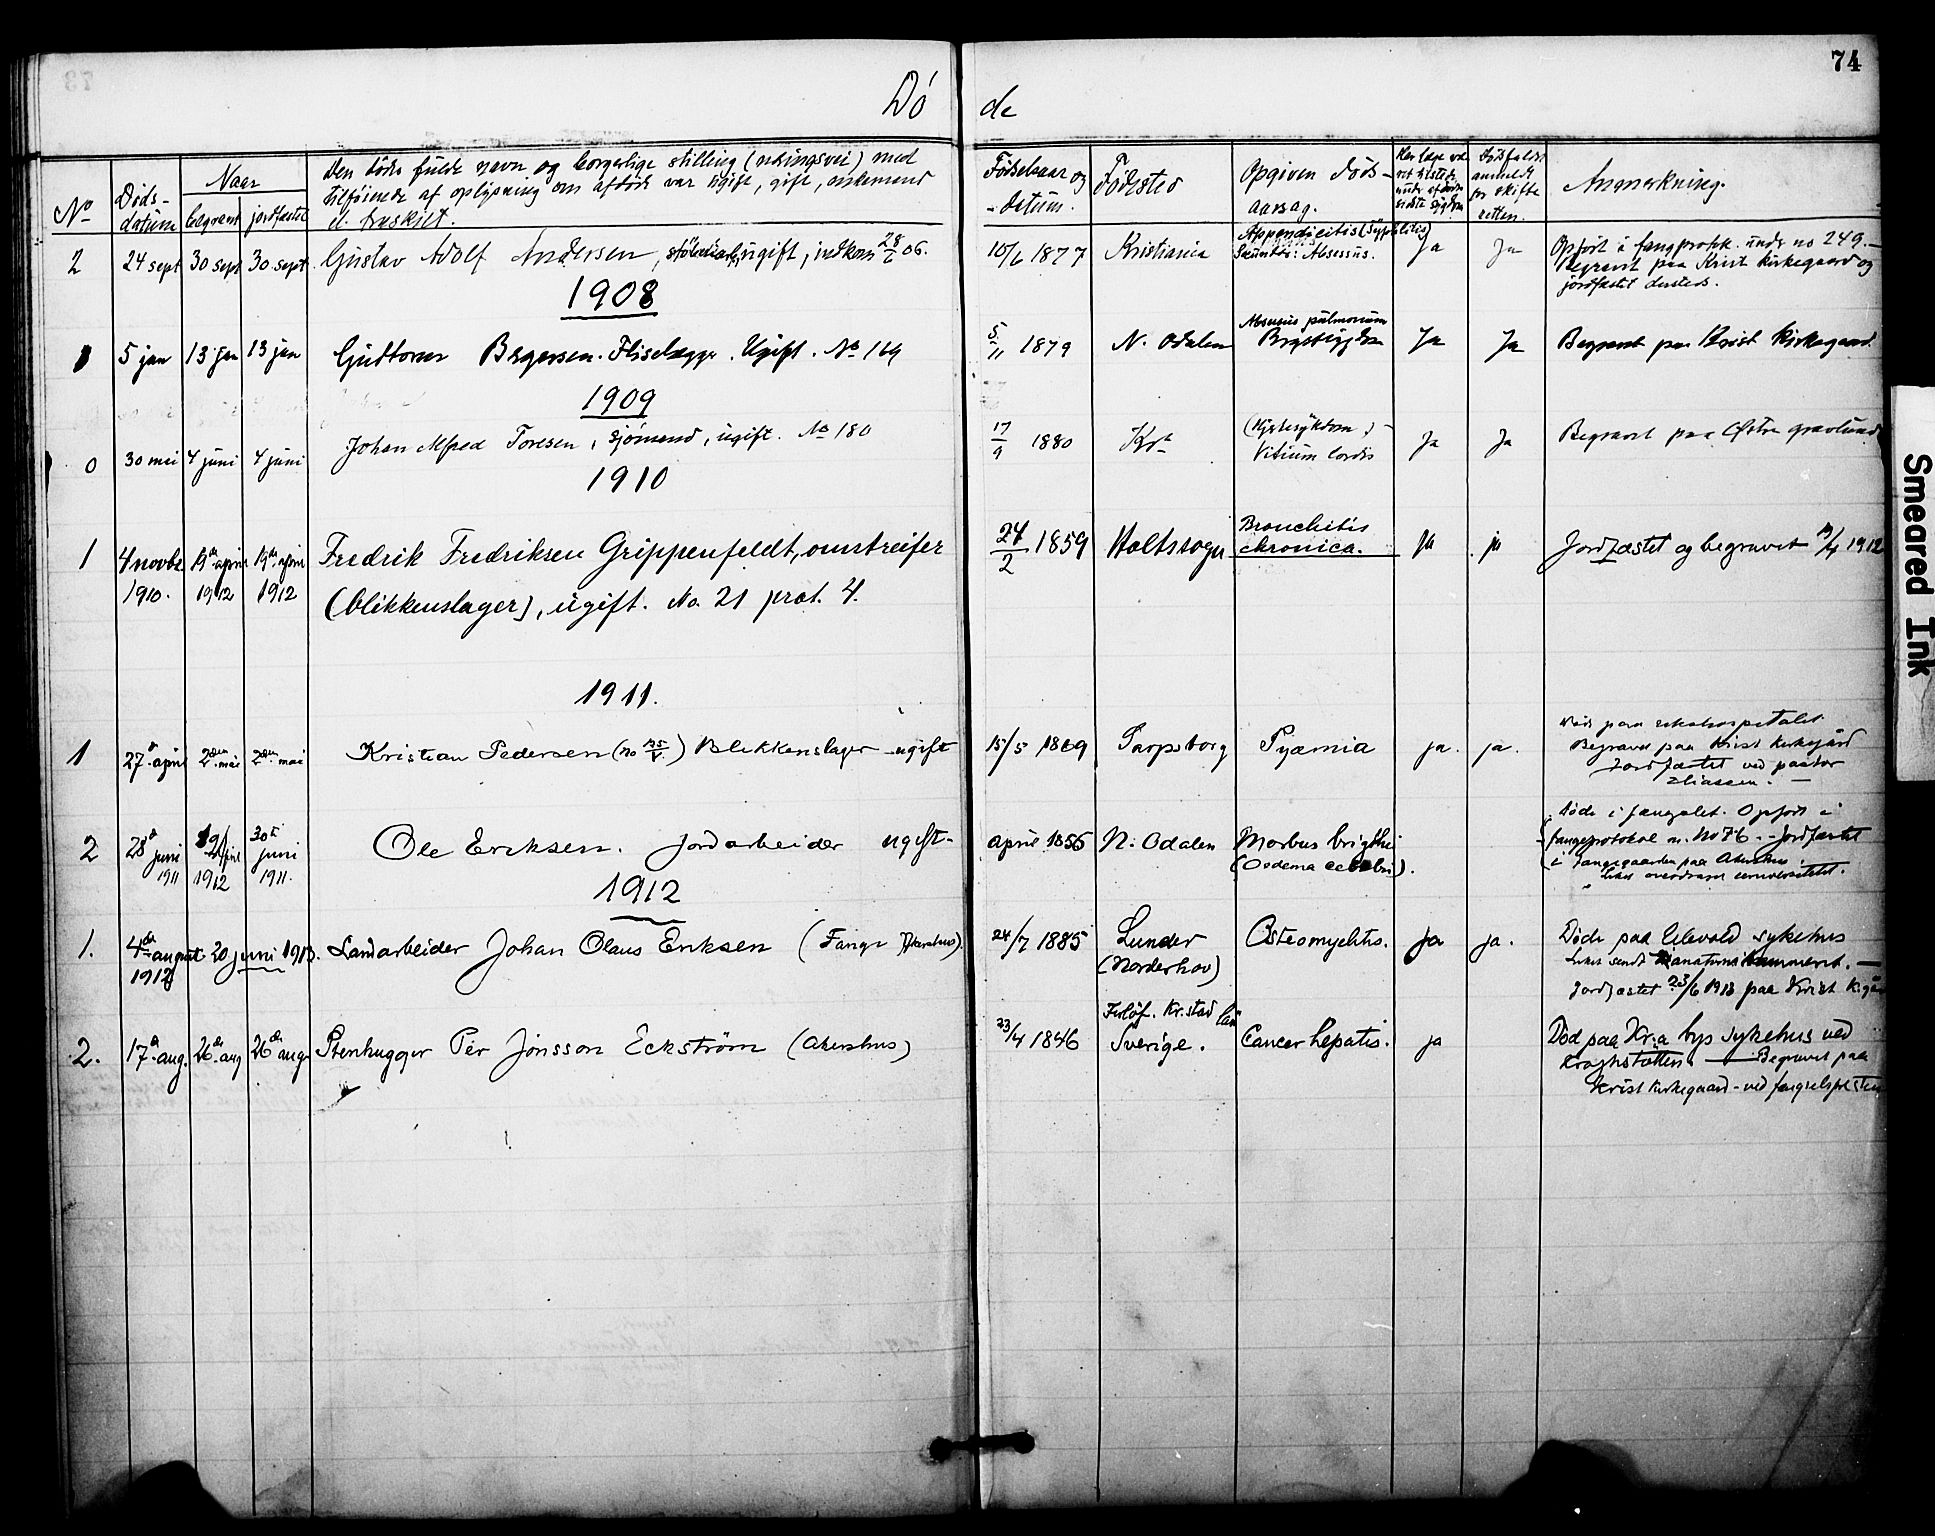 74
Dø de
No
Døds-
datum
Naar
begravet
jordfæstet
Den dødes fulde navn og borgerlige stilling (næringsvei) med
tilføiende af oplysning om afdøde var ugift, gift, enkemand
el. fraskilt.
Fødselsaar og
-datum.
Fødested
Opgiven døds-
aarsag.
Anmerkning.
2 24 sept 30 sept 30 sept. Gustav Adolf Andersen, ugift, indkom 28/6 06. 10/6 1877 Kristiania Appendicitis (Syphilitis) Ja Ja Opført i fangprotok. under no 249.—
Absessus. Begravet paa Krist kirkegaard og
jordfæstet dersteds.
1908
1 5 jan 13 jan 13 jan Guttorm Bryersen. Fliselægger. Ugift. No 169 5/11 1879 N. Odalen Absessus pulmonum Ja Ja Begravet paa Krist Kirkegaard.
Brystsygdom
1909
0 30 mai 4 juni 4 juni Johan Alfred Toresen, sjømand, ugift. No 180 17/9 1880 Kra (Hjertesykdom) Ja Ja Begravet paa Østre gravlund
Vitium cordis
1910
1 4 novbr 19de april 19de april Fredrik Fredriksen Grippenfeldt, omstreifer 24/2 1859 Holtssogn Bronchitis ja ja Jordfæstet og begravet 19/4 1912
1910. 1912 1912 (blikkenslager), ugift. No. 21 prot. 4. chronica.
1911.
1 27de april 2den mai 2den mai Kristian Pedersen Blikkenslager ugift 15/5 1869 Sarpsborg Pyæmia ja. ja. Død paa rikshospitalet
Begravet paa Krist kirkegård
Jordfæstet ved pastor
Eliassen.—
2 28de juni 19/april 30te juni Ole Eriksen. Jordarbeider ugift- april 1856 N. Odalen Morbus brigthi Døde i fængslet. Opført i
1911 1912 1911. (Oedema cerebri). fangeprotokol under No 76.- Jordfæstet
i fangegaarden paa Akershus.
Liket overdraget universitetet.
1912
1. 4de august 20 juni 1913. Landarbeider Johan Olaus Eriksen (Fange Akershus). 24/7 1885 Lunder Osteomyelitis. ja ja. Døde paa Ullevold sykehus
1912 (Norderhov) Liket sendt anatomikammeret.—
Jordfæstet 23/6 1913 paa Krist K.gård
2. 17de aug. 26de aug 26de aug Stenhugger Per Jönsson Eckström (Akershus) 23/4 1846 Kr.stad län Cancer hepatis. ja Død paa Kr.a bys sykehus ved
Sverige. Krohgstøtten — Begravet paa
Krist kirkegaard - ved fængselspresten
Smeared Ink